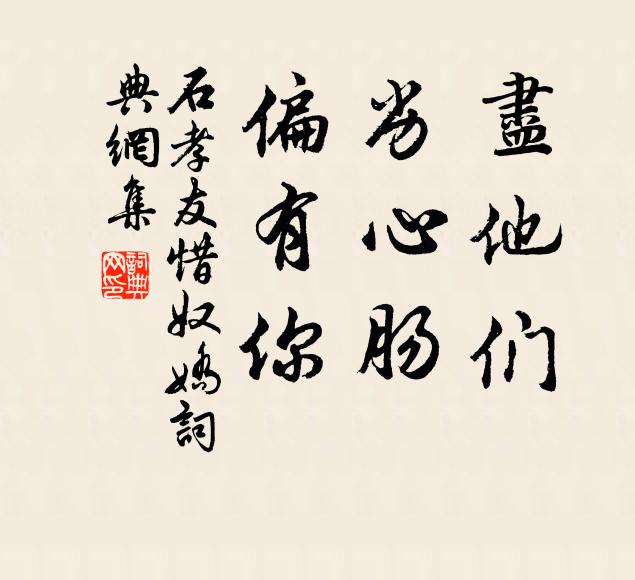 盡他们
劣心肠
偏有你
石孝友惜奴嬌詞
典網集
詞典网印